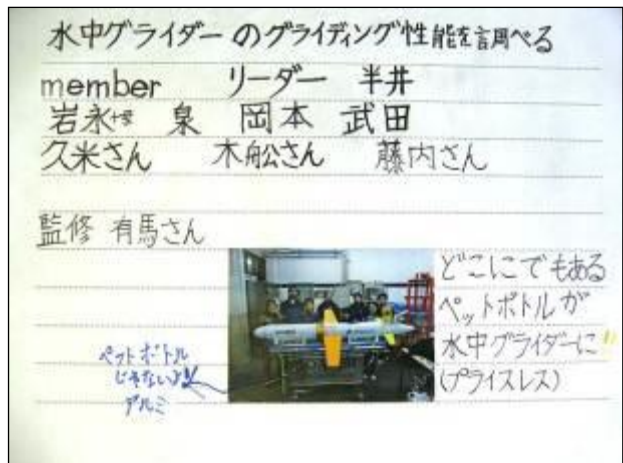 水中グライダーのグライディング性能を調べる
member リーダー 半井
岩永 泉 岡本 武田
久米さん 木舩さん 藤内さん
監修 有馬さん
どこにでもある
ペットボトルが
水中グライダーに!!
(プライスレス)
ペットボトル
じゃないよ!
アルミ